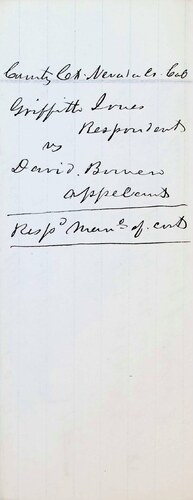 County Ct. Nevada Co. Cal
Griffith Jones
Respondent
vs
David Bowen
Appellant
Resp^d Mem^o of cost